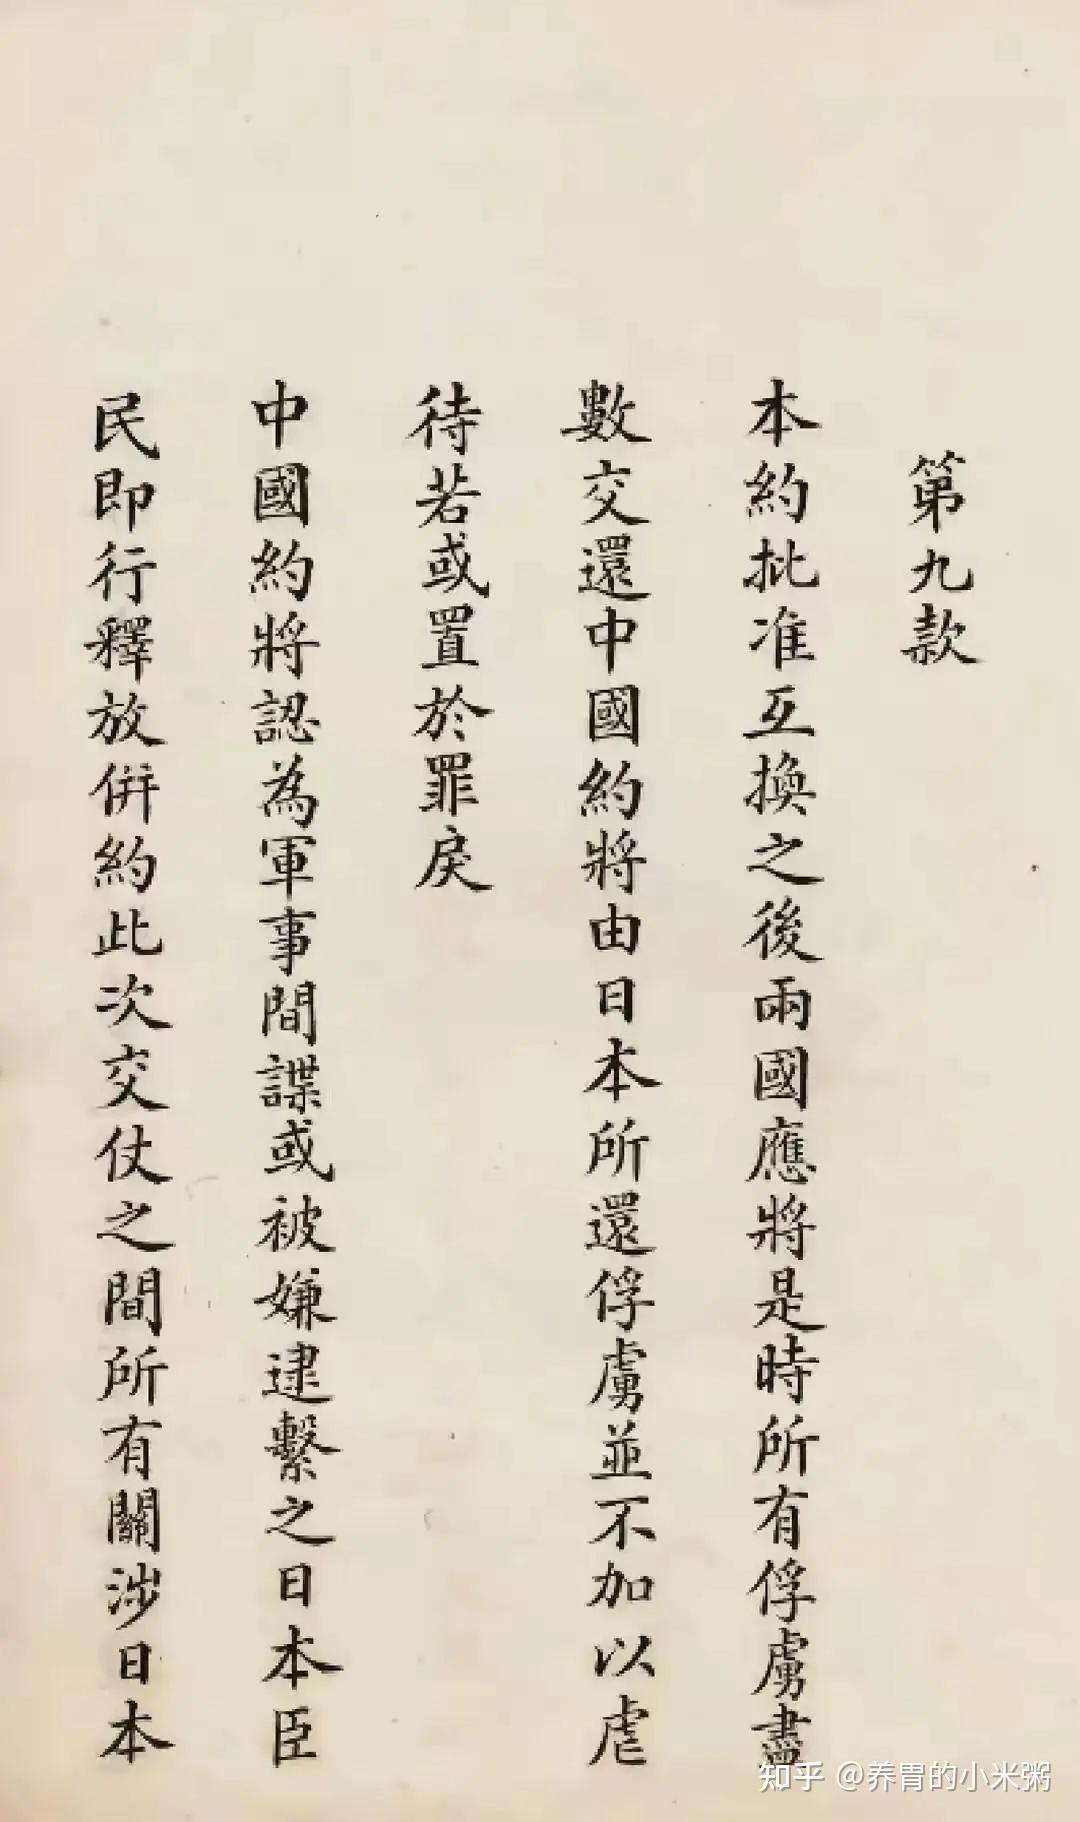 第九款
本約批准互換之後兩國應將是時所有俘虜盡
數交還中國約將由日本所還俘虜並不加以虐
待若或置於罪戾
中國約將認為軍事間諜或被嫌逮繫之日本臣
民即行釋放併約此次交仗之間所有關涉日本
知乎 @养胃的小米粥